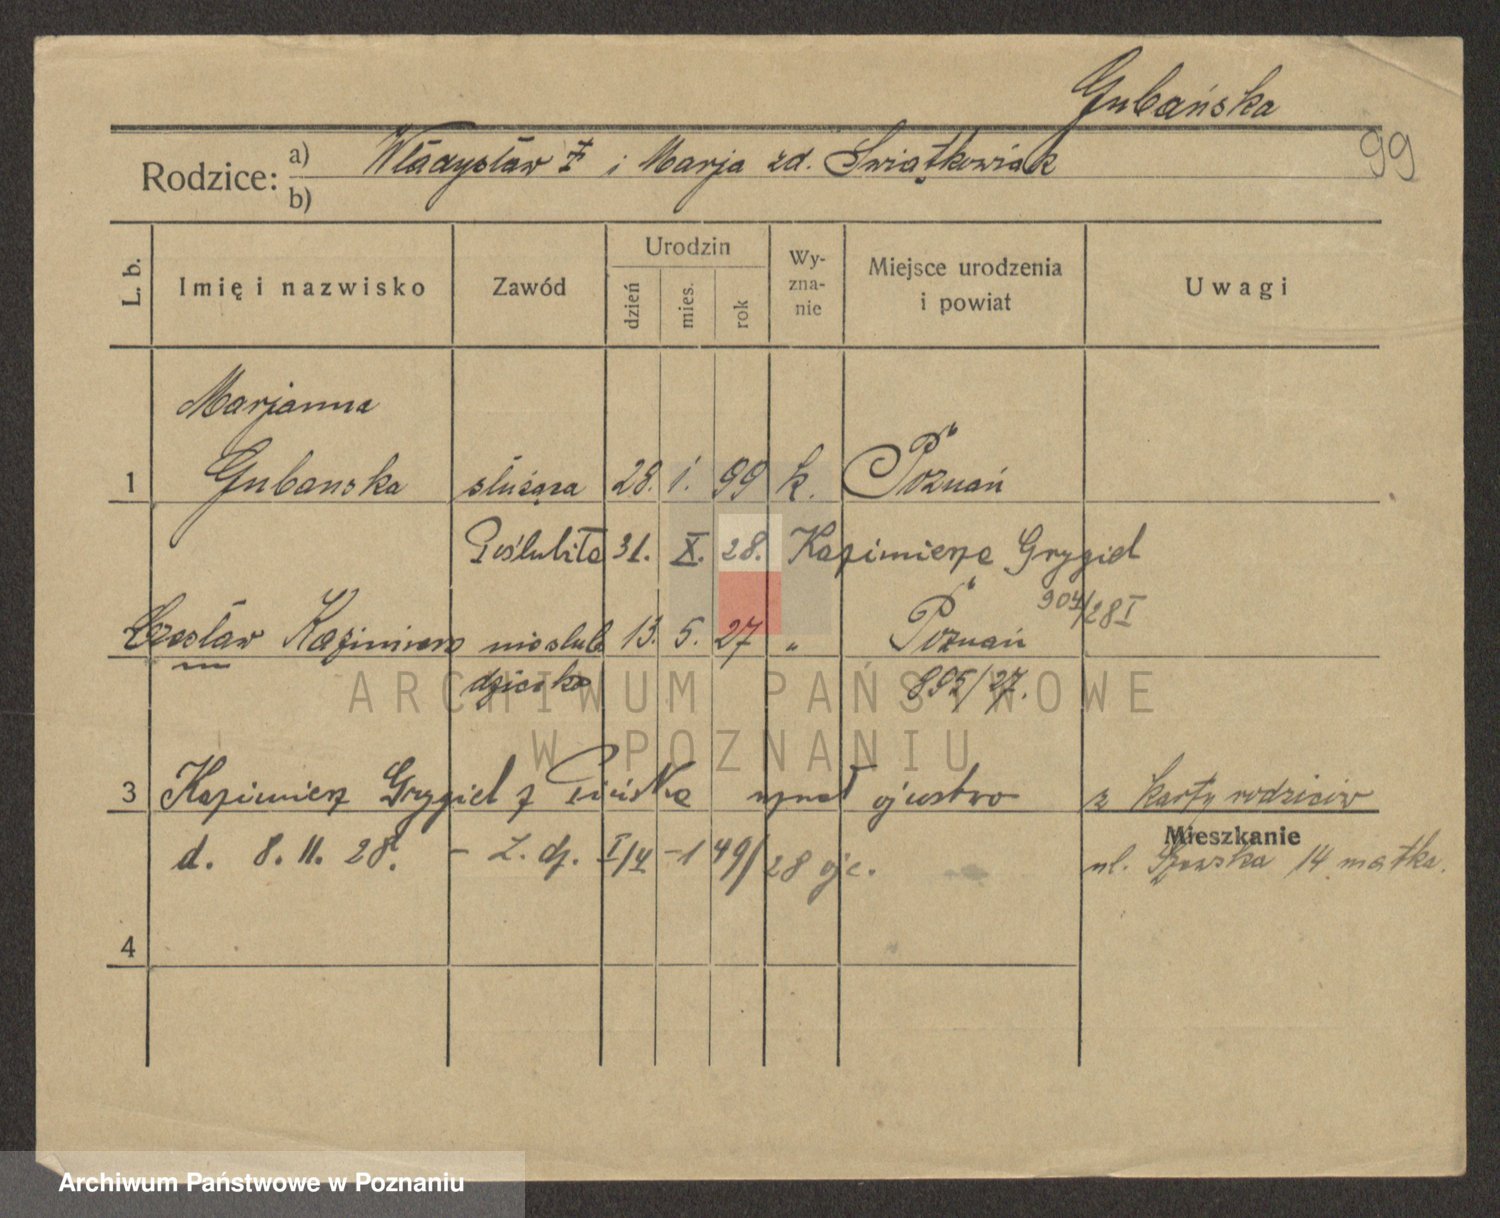 Gubańska
99
Rodzice: a) Władysław ‡ i Marja zd. Świątkowiak
b)
L. b. Imię i nazwisko Zawód Urodzin dzień mies. rok Wyznanie Miejsce urodzenia i powiat Uwagi
Marjanna
1 Gubanska służąca 28. 1. 99 k. Poznań
Poślubiła 31. X. 28. Kazimierza Grygiel
904/28 I
Czesław Kazimierz nieślub. 13. 5. 27 " Poznań
dziecko 895/27.
3 Kazimierz Grygiel z uznał ojcostwo z karty rodziców
d. 8. 11. 28. – L. dz. I/4 – 1 49/28 ojc.
Mieszkanie
ul. Szewska 14 matka.
4
ARCHIWUM PAŃSTWOWE
W POZNANIU
Archiwum Państwowe w Poznaniu